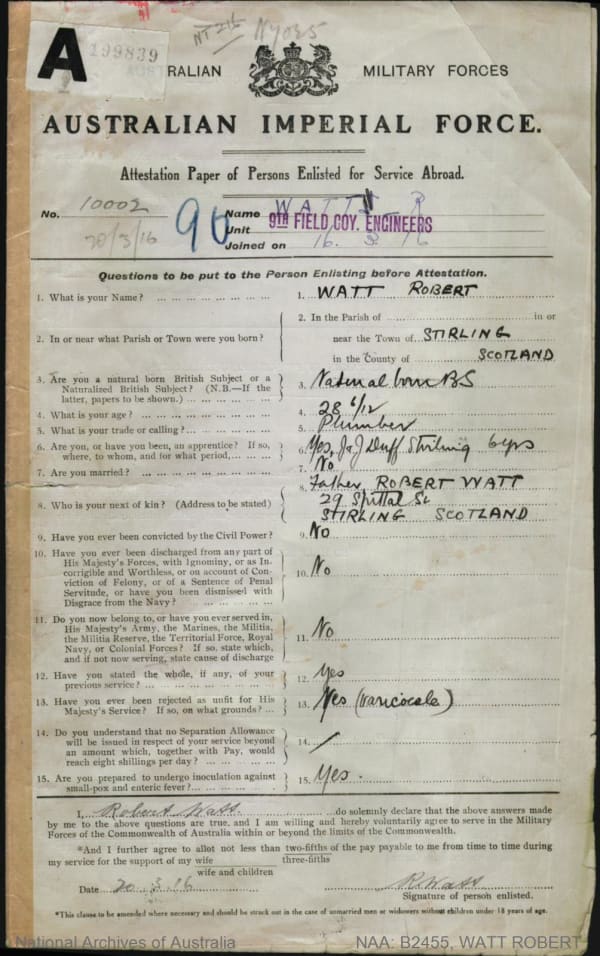 NT 216 N4035
A 199839
AUSTRALIAN MILITARY FORCES
AUSTRALIAN IMPERIAL FORCE.
Attestation Paper of Persons Enlisted for Service Abroad.
No. 10002 Name WATT R
20/3/16 Unit 9TH FIELD COY. ENGINEERS
Joined on 16. 3. 16
Questions to be put to the Person Enlisting before Attestation.
1. What is your Name? 1. WATT ROBERT
2. In or near what Parish or Town were you born? 2. In the Parish of in or
near the Town of STIRLING
in the County of SCOTLAND
3. Are you a natural born British Subject or a
Naturalized British Subject? (N.B.—If the
latter, papers to be shown.) 3. Natural born BS
4. What is your age? 4. 28 6/12
5. What is your trade or calling? 5. Plumber
6. Are you, or have you been, an apprentice? If so,
where, to whom, and for what period, 6. Yes, J. J Duff Stirling 6 yrs
7. Are you married? 7. No
8. Who is your next of kin? (Address to be stated) 8. Father ROBERT WATT
29 Spittal St
STIRLING SCOTLAND
9. Have you ever been convicted by the Civil Power? 9. No
10. Have you ever been discharged from any part of
His Majesty's Forces, with Ignominy, or as In-
corrigible and Worthless, or on account of Con-
viction of Felony, or of a Sentence of Penal
Servitude, or have you been dismissed with
Disgrace from the Navy? 10. No
11. Do you now belong to, or have you ever served in,
His Majesty's Army, the Marines, the Militia,
the Militia Reserve, the Territorial Force, Royal
Navy, or Colonial Forces? If so, state which,
and if not now serving, state cause of discharge 11. No
12. Have you stated the whole, if any, of your
previous service? 12. Yes
13. Have you ever been rejected as unfit for His
Majesty's Service? If so, on what grounds? 13. Yes (varicocele)
14. Do you understand that no Separation Allowance
will be issued in respect of your service beyond
an amount which, together with Pay, would
reach eight shillings per day? 14. /
15. Are you prepared to undergo inoculation against
small-pox and enteric fever? 15. Yes.
I, Robert Watt do solemnly declare that the above answers made
by me to the above questions are true, and I am willing and hereby voluntarily agree to serve in the Military
Forces of the Commonwealth of Australia within or beyond the limits of the Commonwealth.
*And I further agree to allot not less than two-fifths of the pay payable to me from time to time during
three-fifths
my service for the support of my wife
wife and children
Date 20. 3. 16 R Watt
Signature of person enlisted.
*This clause to be amended where necessary and should be struck out in the case of unmarried men or widowers without children under 18 years of age.
National Archives of Australia NAA: B2455, WATT ROBERT